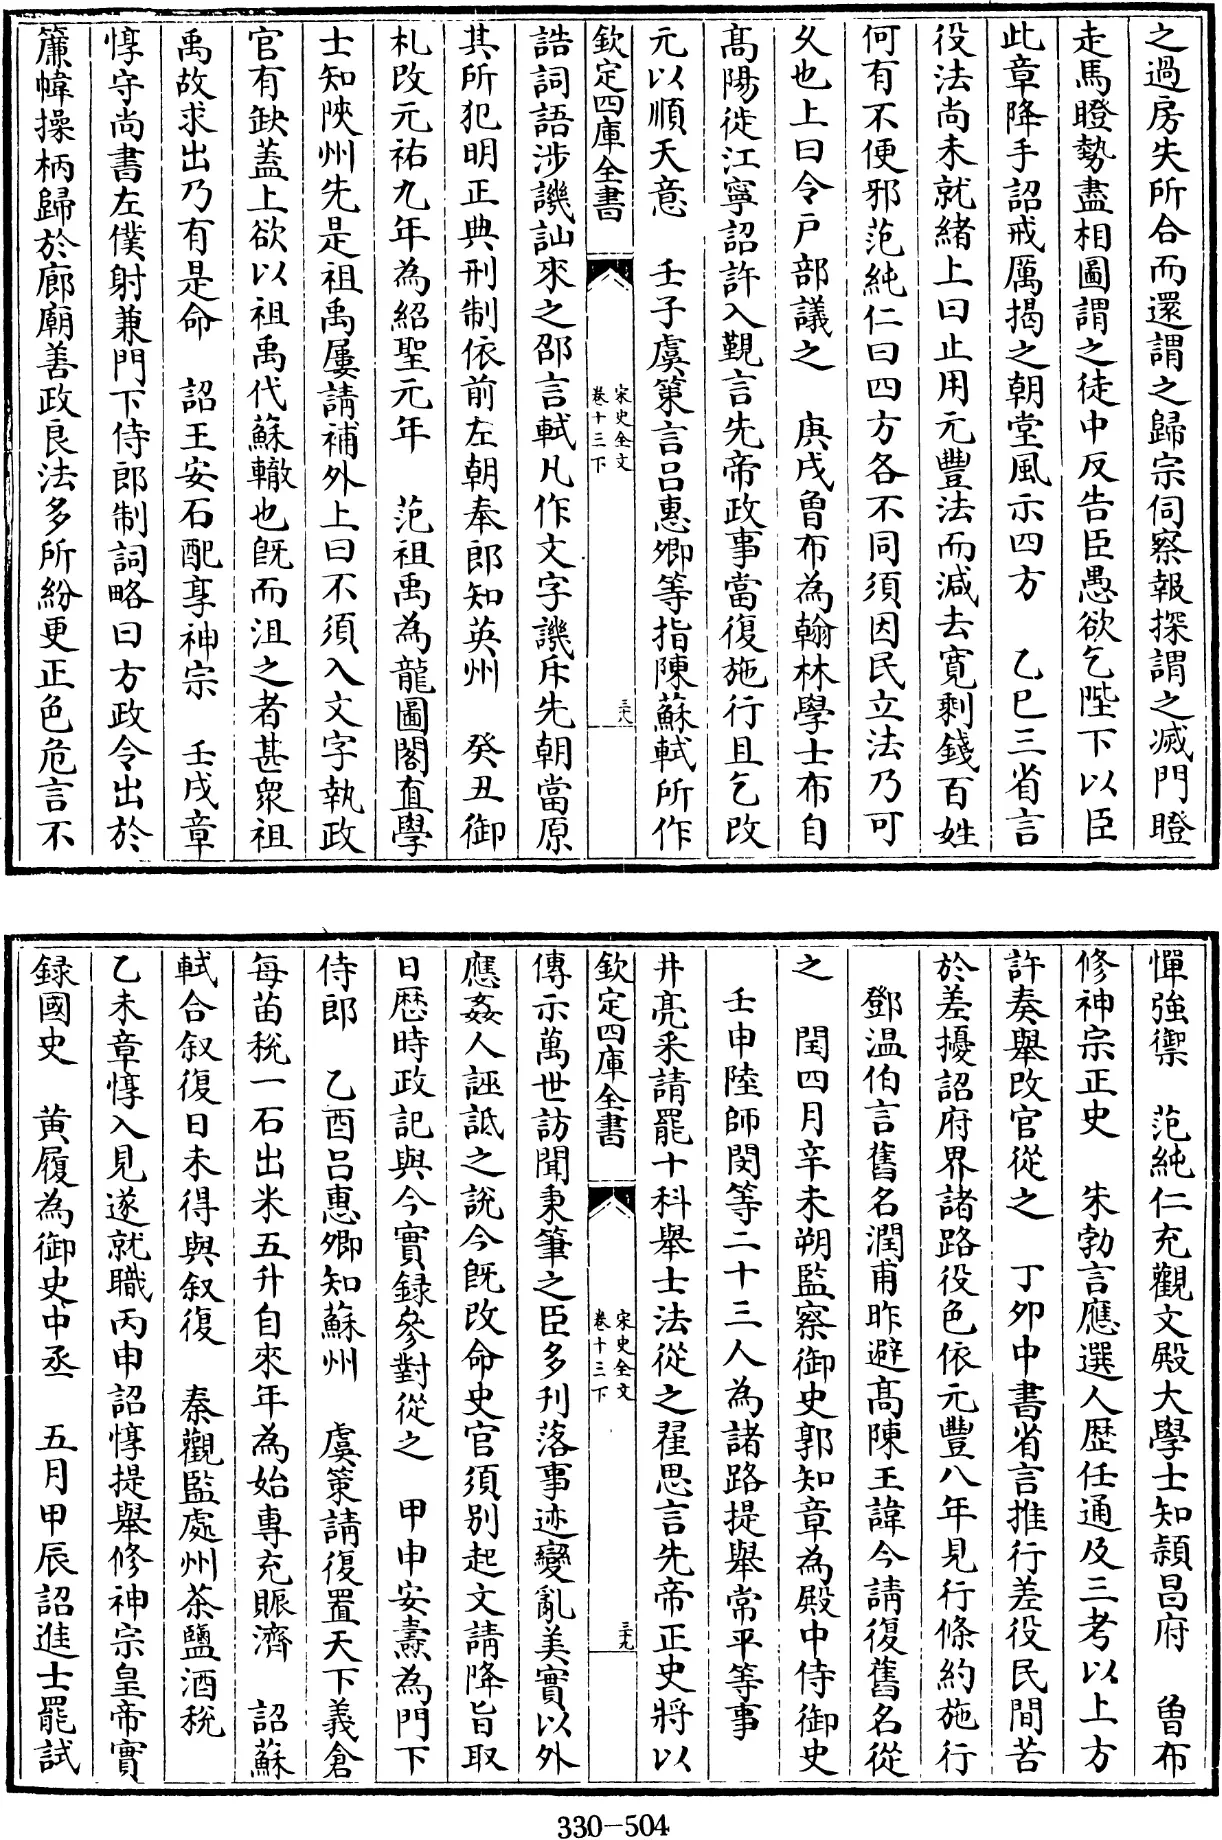 之過房失所合而還謂之歸宗伺察報探謂之滅門瞪
走馬瞪勢盡相圖謂之徒中反告臣愚欲乞陛下以臣
此章降手詔戒厲揭之朝堂風示四方　乙巳三省言
役法尚未就緒上曰止用元豐法而減去寬剩錢百姓
何有不便邪范純仁曰四方各不同須因民立法乃可
乆也上曰令户部議之　庚戌曽布為翰林學士布自
髙陽徙江寧詔許入覲言先帝政事當復施行且乞改
元以順天意　壬子虞策言吕惠卿等指陳蘇軾所作
欽定四庫全書　宋史全文　卷十三下　三十八
誥詞語涉譏訕來之邵言軾凡作文字譏斥先朝當原
其所犯明正典刑制依前左朝奉郎知英州　癸丑御
札改元祐九年為紹聖元年　范祖禹為龍圖閣直學
士知陜州先是祖禹屢請補外上曰不須入文字執政
官有缺蓋上欲以祖禹代蘇轍也旣而沮之者甚衆祖
禹故求出乃有是命　詔王安石配享神宗　壬戌章
惇守尚書左僕射兼門下侍郎制詞略曰方政令出於
簾幃操柄歸於廊廟善政良法多所紛更正色危言不
憚強禦　范純仁充觀文殿大學士知潁昌府　曽布
修神宗正史　朱勃言應選人歴任通及三考以上方
許奏舉改官從之　丁夘中書省言推行差役民間苦
於差擾詔府界諸路役色依元豐八年見行條約施行
鄧温伯言舊名潤甫昨避髙陳王諱今請復舊名從
之　閏四月辛未朔監察御史郭知章為殿中侍御史
壬申陸師閔等二十三人為諸路提舉常平等事
井亮采請罷十科舉士法從之翟思言先帝正史將以
欽定四庫全書　宋史全文　卷十三下　三十九
傳示萬世訪聞秉筆之臣多刋落事迹變亂美實以外
應姦人誣詆之說今旣改命史官須別起文請降旨取
日歴時政記與今實録參對從之　甲申安燾為門下
侍郎　乙酉吕惠卿知蘇州　虞策請復置天下義倉
每苗稅一石出米五升自來年為始專充賑濟　詔蘇
軾合叙復日未得與叙復　秦觀監處州茶鹽酒稅
乙未章惇入見遂就職丙申詔惇提舉修神宗皇帝實
録國史　黄履為御史中丞　五月甲辰詔進士罷試
330-504